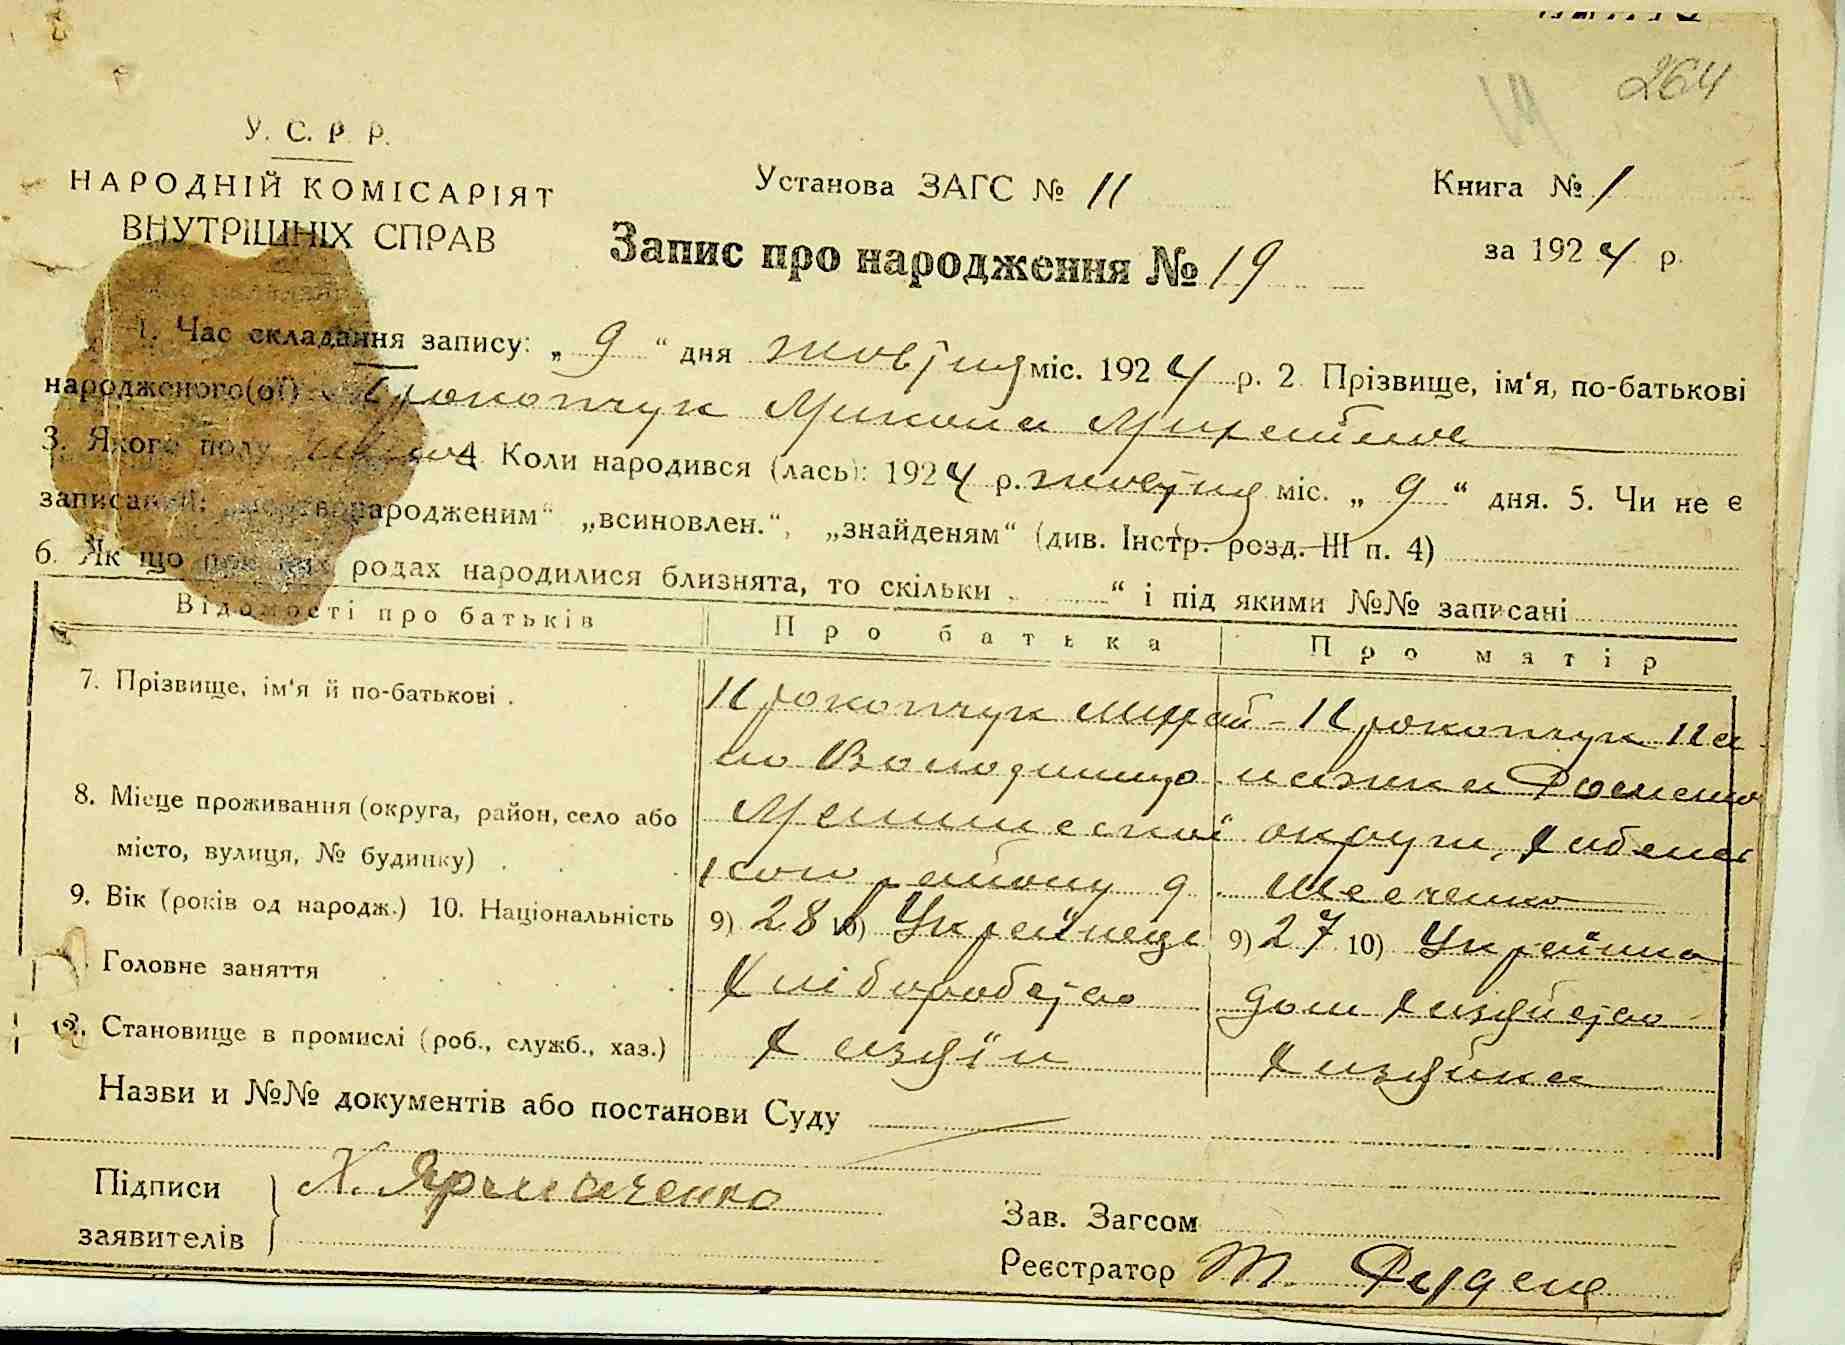 264
У. С. Р. Р.
НАРОДНІЙ КОМІСАРІЯТ
ВНУТРІШНІХ СПРАВ
Установа ЗАГС № 11
Книга № 1
за 1924 р.
Запис про народження № 19
1. Час складання запису: „ 9 “ дня жовтня міс. 1924 р. 2. Прізвище, ім‘я, по-батькові
народженого(ої) Прокопчук Микола Михайлов
3. Якого полу 4. Коли народився (лась): 1924 р. жовтня міс. „ 9 “ дня. 5. Чи не є
записаний: „мертвонародженим“ „всиновлен.“, „знайденям“ (див. Інстр. розд. III п. 4)
6. Як що при цих родах народилися близнята, то скільки “ і під якими №№ записані
Відомості про батьків Про батька Про матір
7. Прізвище, ім‘я й по-батькові . Прокопчук Михай- Прокопчук Па
ло Володимир
8. Місце проживання (округа, район, село або округи,
місто, вулиця, № будинку) району Шевченко
9. Вік (років од народж.) 10. Національність 9) 28 10) Українець 9) 27 10) Українка
Головне заняття Хліборобство дом хазяйство
12. Становище в промислі (роб., служб., хаз.) Хазяїн Хазяйка
Назви и №№ документів або постанови Суду
Підписи Х. Ярмаченко
заявителів
Зав. Загсом
Реєстратор Т.